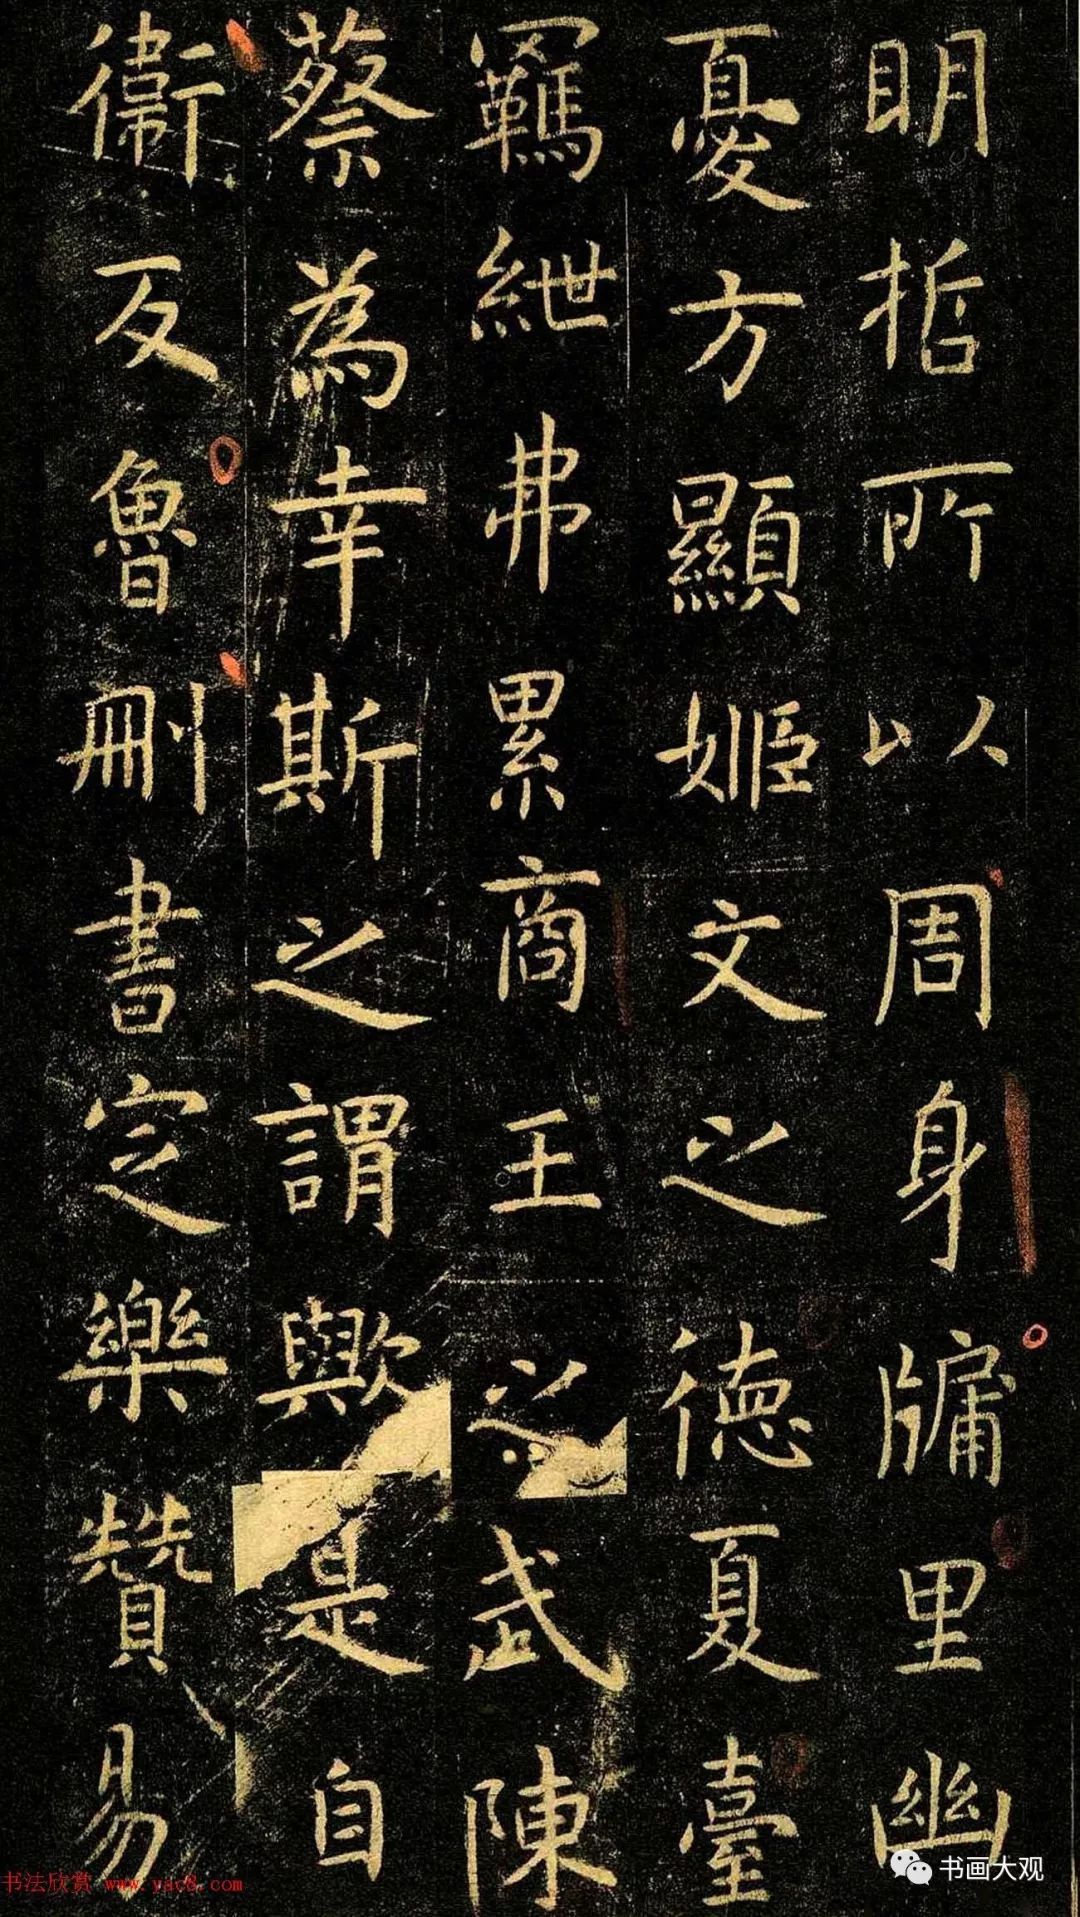 明哲所以周身牖里幽
憂方顯姬文之德夏臺
羈紲弗累商王之武陳
蔡為幸斯之謂歟是自
衛反魯刪書定樂贊易
书法欣赏 www.yac8.com
书画大观